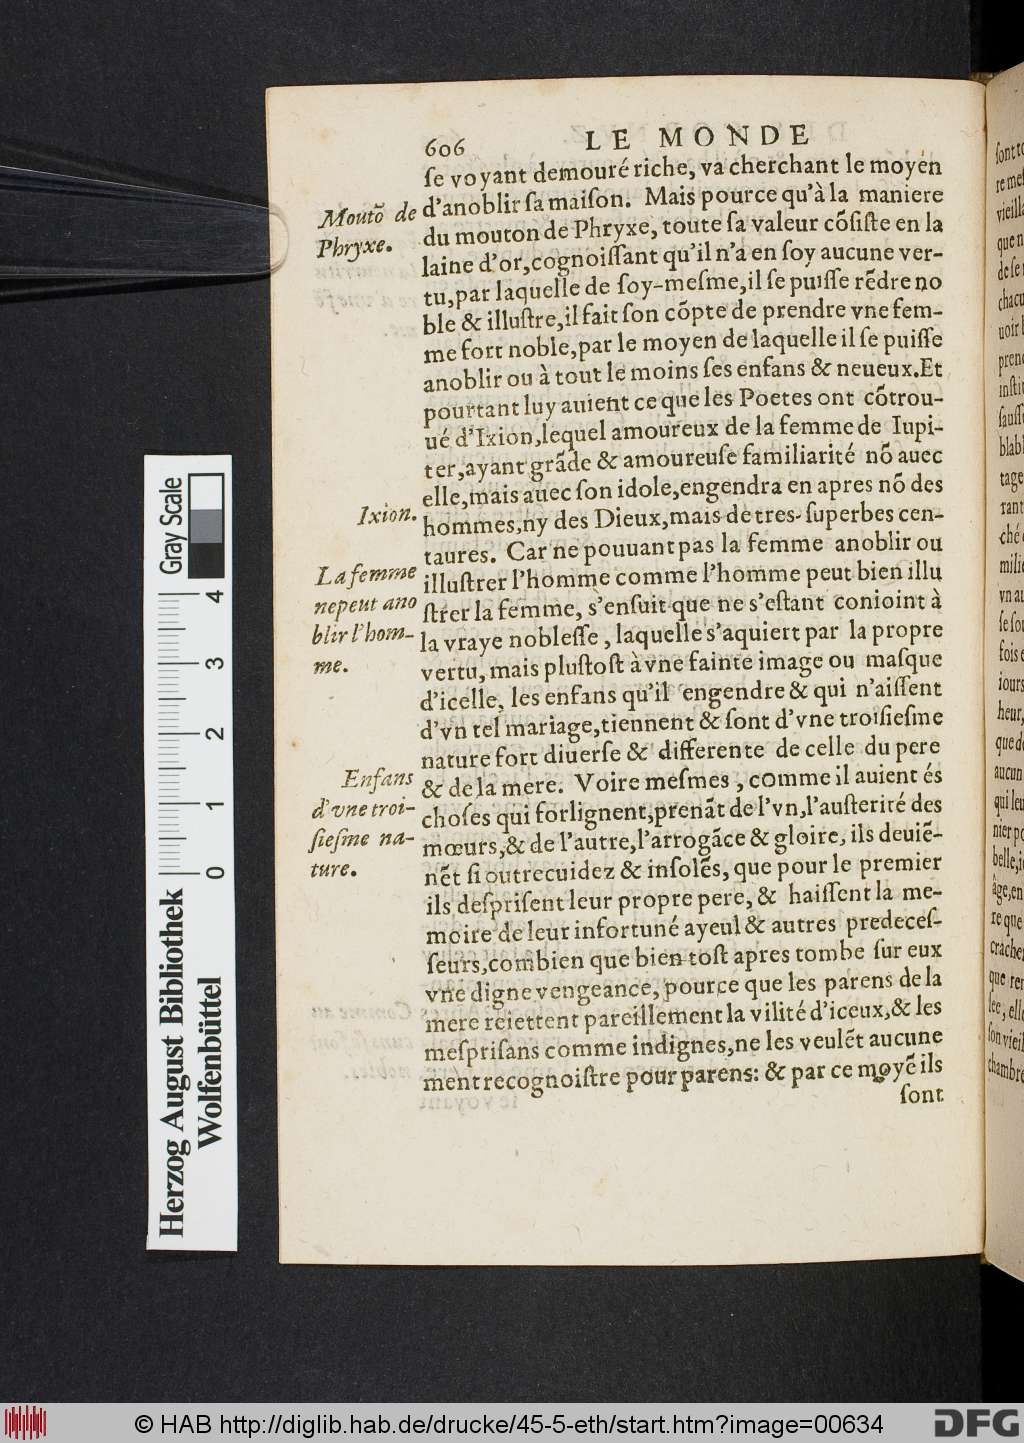 606 LE MONDE
ſe voyant demouré riche, va cherchant le moyen
d'anoblir ſa maiſon. Mais pource qu'à la maniere
du mouton de Phryxe, toute ſa valeur cõſiſte en la
laine d'or, cognoiſſant qu'il n'a en ſoy aucune ver-
tu, par laquelle de ſoy-meſme, il ſe puiſſe rẽdre no
ble & illuſtre, il fait ſon cõpte de prendre vne fem-
me fort noble, par le moyen de laquelle il ſe puiſſe
anoblir ou à tout le moins ſes enfans & neueux. Et
pourtant luy auient ce que les Poetes ont cõtrou-
ué d'Ixion, lequel amoureux de la femme de Iupi-
ter, ayant grãde & amoureuſe familiarité nõ auec
elle, mais auec ſon idole, engendra en apres nõ des
hommes, ny des Dieux, mais de tres-ſuperbes cen-
taures. Car ne pouuant pas la femme anoblir ou
illuſtrer l'homme comme l'homme peut bien illu
ſtrer la femme, s'enſuit que ne s'eſtant conioint à
la vraye nobleſſe, laquelle s'aquiert par la propre
vertu, mais pluſtoſt à vne fainte image ou maſque
d'icelle, les enfans qu'il engendre & qui n'aiſſent
d'vn tel mariage, tiennent & ſont d'vne troiſieſme
nature fort diuerſe & differente de celle du pere
& de la mere. Voire meſmes, comme il auient és
choſes qui forlignent, prenãt de l'vn, l'auſterité des
mœurs, & de l'autre, l'arrogãce & gloire, ils deuiẽ-
nẽt ſi outrecuidez & inſolẽs, que pour le premier
ils deſpriſent leur propre pere, & haiſſent la me-
moire de leur infortuné ayeul & autres predeceſ-
ſeurs, combien que bien toſt apres tombe ſur eux
vne digne vengeance, pource que les parens de la
mere reiettent pareillement la vilité d'iceux, & les
meſpriſans comme indignes, ne les veulẽt aucune
ment recognoiſtre pour parens: & par ce moyẽ ils
ſont
Moutõ de
Phryxe.
Ixion.
La femme
ne peut ano
blir l'hom-
me.
Enfans
d'vne troi-
ſieſme na-
ture.
ſont to
re meſ
vieilla
que n
de ſe
chacu
uoir
prend
inſtit
ſauſſ
blabl
tage
rant
ché
milie
vn au
ſe ſou
fois e
iours
heur,
que de
aucun
qui leu
nier po
belle, ie
âge, en
re que
cracher
que ren
ſee, elle
ſon vieil
chambre
Gray Scale
0 1 2 3 4
Herzog August Bibliothek
Wolfenbüttel
© HAB http://diglib.hab.de/drucke/45-5-eth/start.htm?image=00634
DFG